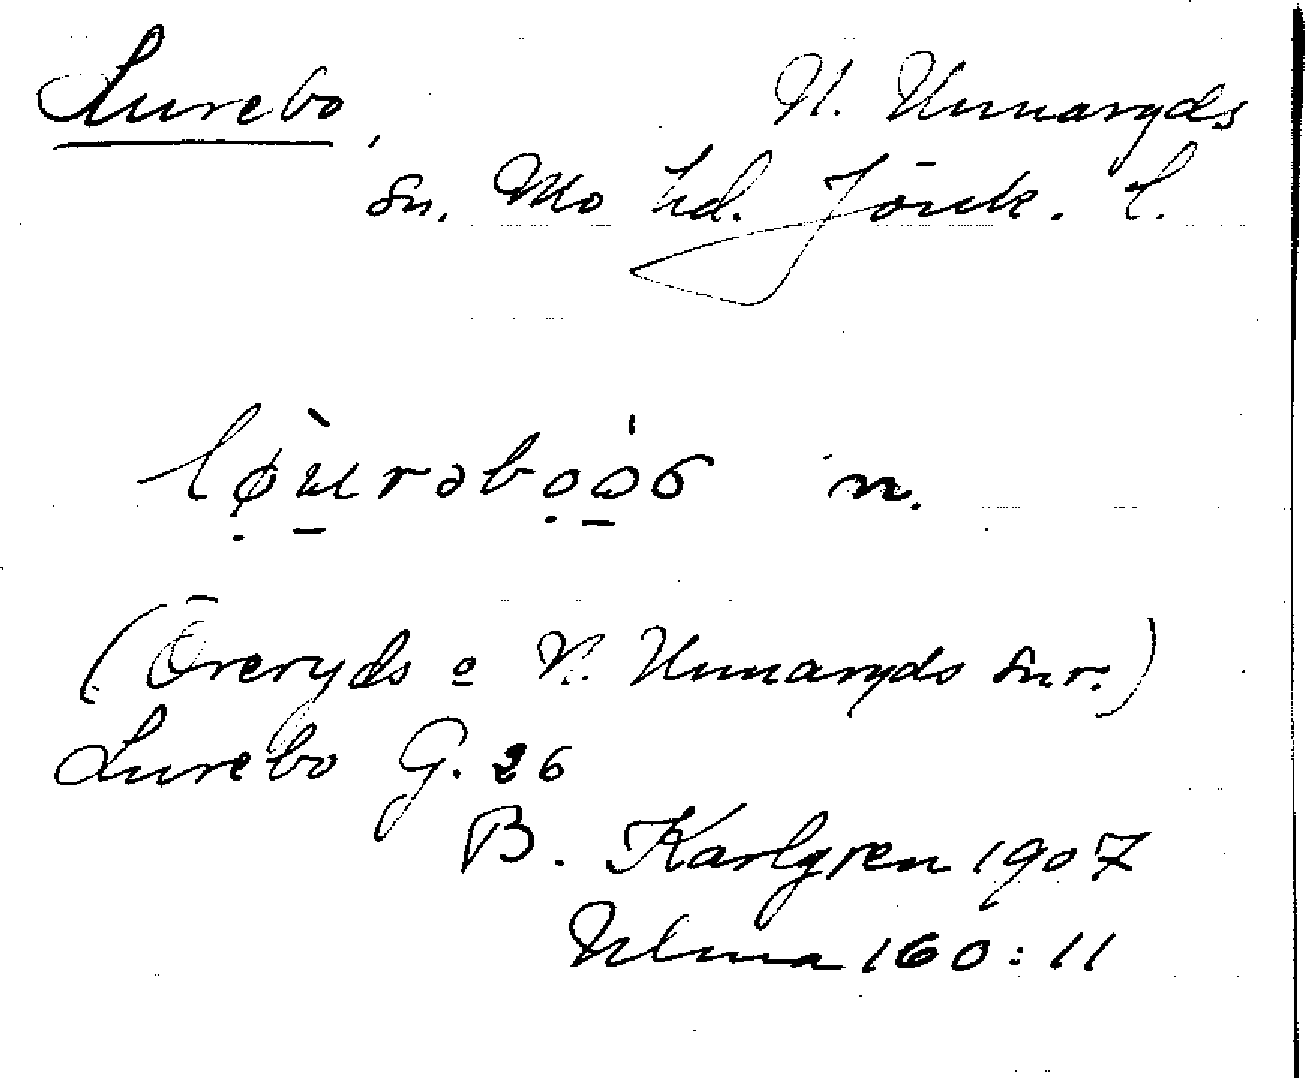 Lurebo, N. Unnaryds
sn. Mo hd. Jönk. l.
n.
(Öreryds o N. Unnaryds snr.)
Lurebo G. 26
B. Karlgren 1907
Ulma 160:11